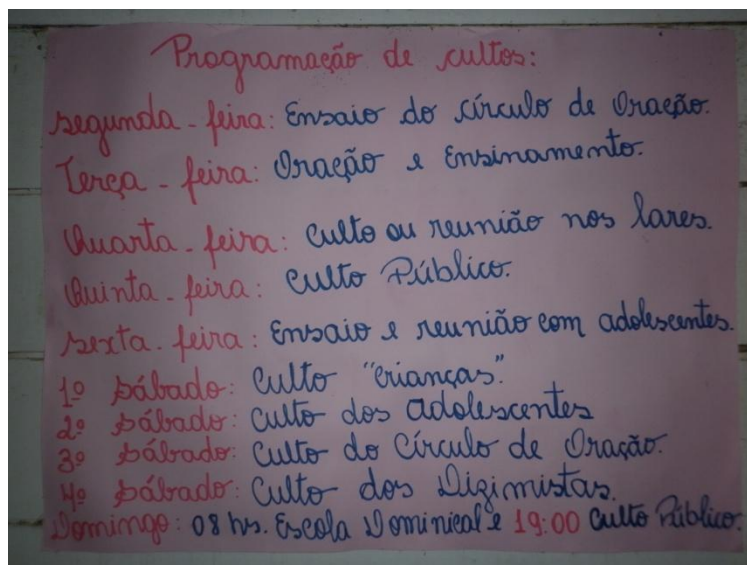 Programação de cultos:
segunda-feira: Ensaio do círculo de Oração.
Terça-feira: Oração e Ensinamento.
Quarta-feira: Culto ou reunião nos lares.
Quinta-feira: Culto Público.
sexta-feira: Ensaio e reunião com adolescentes.
1º sábado: Culto "crianças".
2º sábado: Culto dos adolescentes
3º sábado: Culto do Círculo de Oração.
4º sábado: Culto dos Dizimistas.
Domingo: 08 hs. Escola Dominical e 19:00 Culto Público.